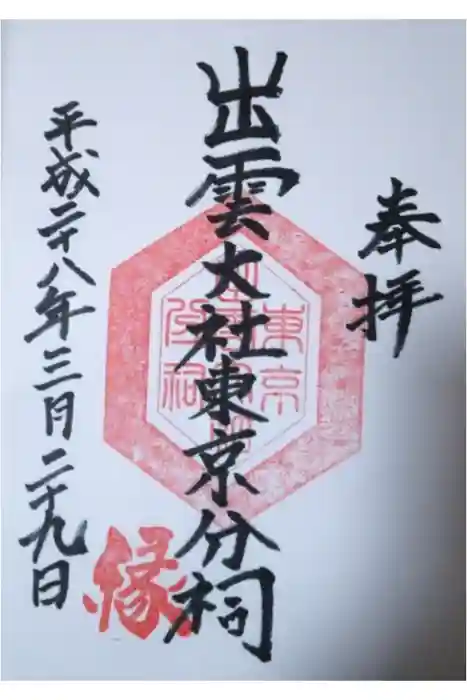 奉拝
出雲大社東京分祠
平成二十八年三月二十九日
縁